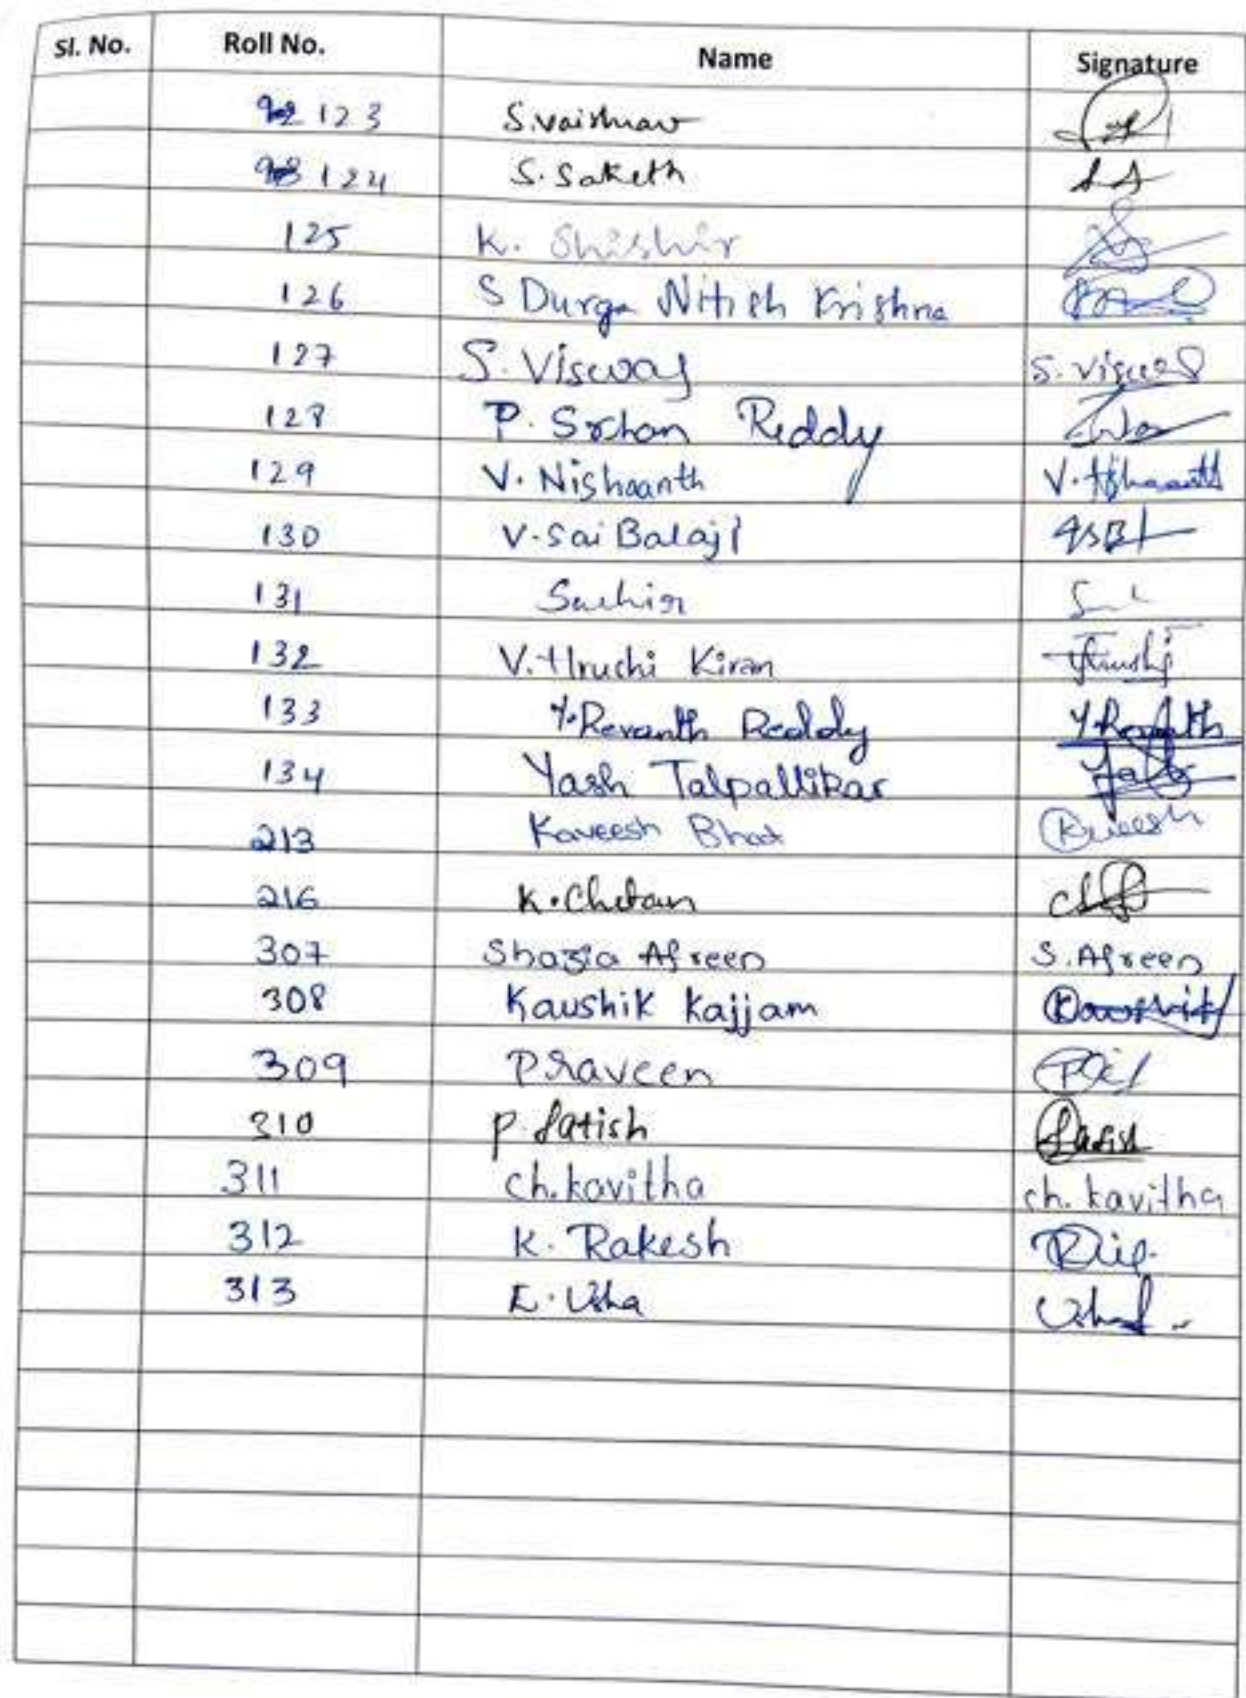 Sl. No. Roll No. Name Signature
123 S.vaishnav
124 S. Saketh
125 K. Shishir
126 S Durga Nitish Krishna
127 S. Viswas S. Viswas
128 P. Srohan Reddy
129 V. Nishaanth V. Nishaanth
130 V. Sai Balaji
131 Suchir
132 V. Hruchi Kiran
133 Y. Revanth Reddy Y. Revanth
134 Yash Talpallikar
213 Kaveesh Bhat Kaveesh
216 K. Chetan
307 Shazia Afreen S. Afreen
308 Kaushik Kajjam Kaushik
309 Praveen
310 P. Satish Satish
311 Ch. kavitha ch. kavitha
312 K. Rakesh
313 E. Usha